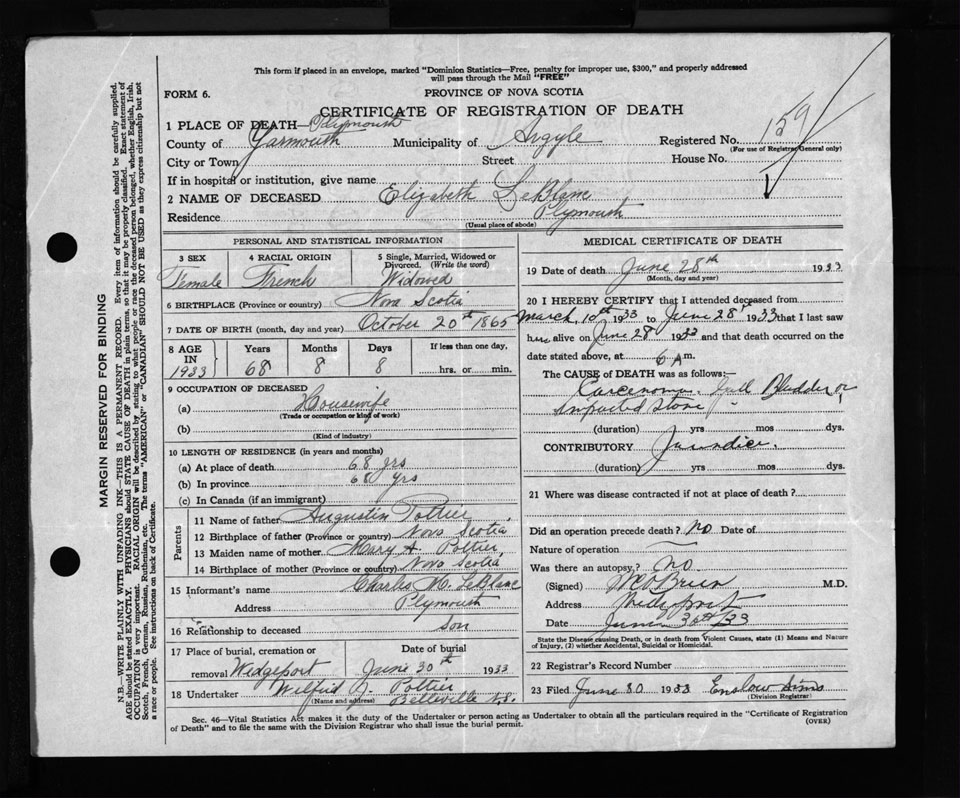 This form if placed in an envelope, marked "Dominion Statistics—Free, penalty for improper use, $300," and properly addressed
will pass through the Mail "FREE"
FORM 6.
PROVINCE OF NOVA SCOTIA
CERTIFICATE OF REGISTRATION OF DEATH
1 PLACE OF DEATH— Plymouth
County of Yarmouth Municipality of Argyle Registered No. 159
(For use of Registrar General only)
City or Town Street House No.
If in hospital or institution, give name
2 NAME OF DECEASED Elizabeth LeBlanc
Residence Plymouth
(Usual place of abode)
PERSONAL AND STATISTICAL INFORMATION
3 SEX 4 RACIAL ORIGIN 5 Single, Married, Widowed or
Divorced. (Write the word)
Female French Widowed
6 BIRTHPLACE (Province or country) Nova Scotia
7 DATE OF BIRTH (month, day and year) October 20th 1865
8 AGE Years Months Days If less than one day,
IN
1933 68 8 8 hrs. or min.
9 OCCUPATION OF DECEASED
(a) Housewife
(Trade or occupation or kind of work)
(b)
(Kind of industry)
10 LENGTH OF RESIDENCE (in years and months)
(a) At place of death 68 yrs
(b) In province 68 yrs
(c) In Canada (if an immigrant)
Parents
11 Name of father Augustin Pottier
12 Birthplace of father (Province or country) Nova Scotia
13 Maiden name of mother Mary A. Pottier
14 Birthplace of mother (Province or country) Nova Scotia
15 Informant's name Charles M. LeBlanc
Address Plymouth
16 Relationship to deceased son
17 Place of burial, cremation or Date of burial
removal Wedgeport June 30th 1933
18 Undertaker Wilfred J. Pottier
(Name and address) Belleville N.S.
MEDICAL CERTIFICATE OF DEATH
19 Date of death June 28th 1933
(Month, day and year)
20 I HEREBY CERTIFY that I attended deceased from
March 10th 1933 to June 28th 1933 that I last saw
her alive on June 28 1933 and that death occurred on the
date stated above, at 6 A m.
The CAUSE of DEATH was as follows:—
Carcenoma. Gall Bladder or
impacted stone
(duration) yrs mos dys.
CONTRIBUTORY Jaundice.
(duration) yrs mos dys.
21 Where was disease contracted if not at place of death?
Did an operation precede death? No Date of
Nature of operation
Was there an autopsy? No
(Signed) O'Brien M.D.
Address Wedgeport
Date June 30th/33
State the Disease causing Death, or in death from Violent Causes, state (1) Means and Nature
of Injury, (2) whether Accidental, Suicidal or Homicidal.
22 Registrar's Record Number
23 Filed June 30 1933 Enslow Sims
(Division Registrar)
Sec. 46—Vital Statistics Act makes it the duty of the Undertaker or person acting as Undertaker to obtain all the particulars required in the "Certificate of Registration
of Death" and to file the same with the Division Registrar who shall issue the burial permit. (OVER)
MARGIN RESERVED FOR BINDING
N.B.—WRITE PLAINLY WITH UNFADING INK—THIS IS A PERMANENT RECORD. Every item of information should be carefully supplied.
AGE should be stated EXACTLY. PHYSICIANS should STATE CAUSE OF DEATH in plain terms, so that it may be properly classified. Exact statement of
OCCUPATION is very important. RACIAL ORIGIN will be described by stating to what people or race the deceased person belonged, whether English, Irish,
Scotch, French, German, Russian, Ruthenian, etc. The terms "AMERICAN" or "CANADIAN" SHOULD NOT BE USED as they express citizenship but not
a race or people. See instructions on back of Certificate.